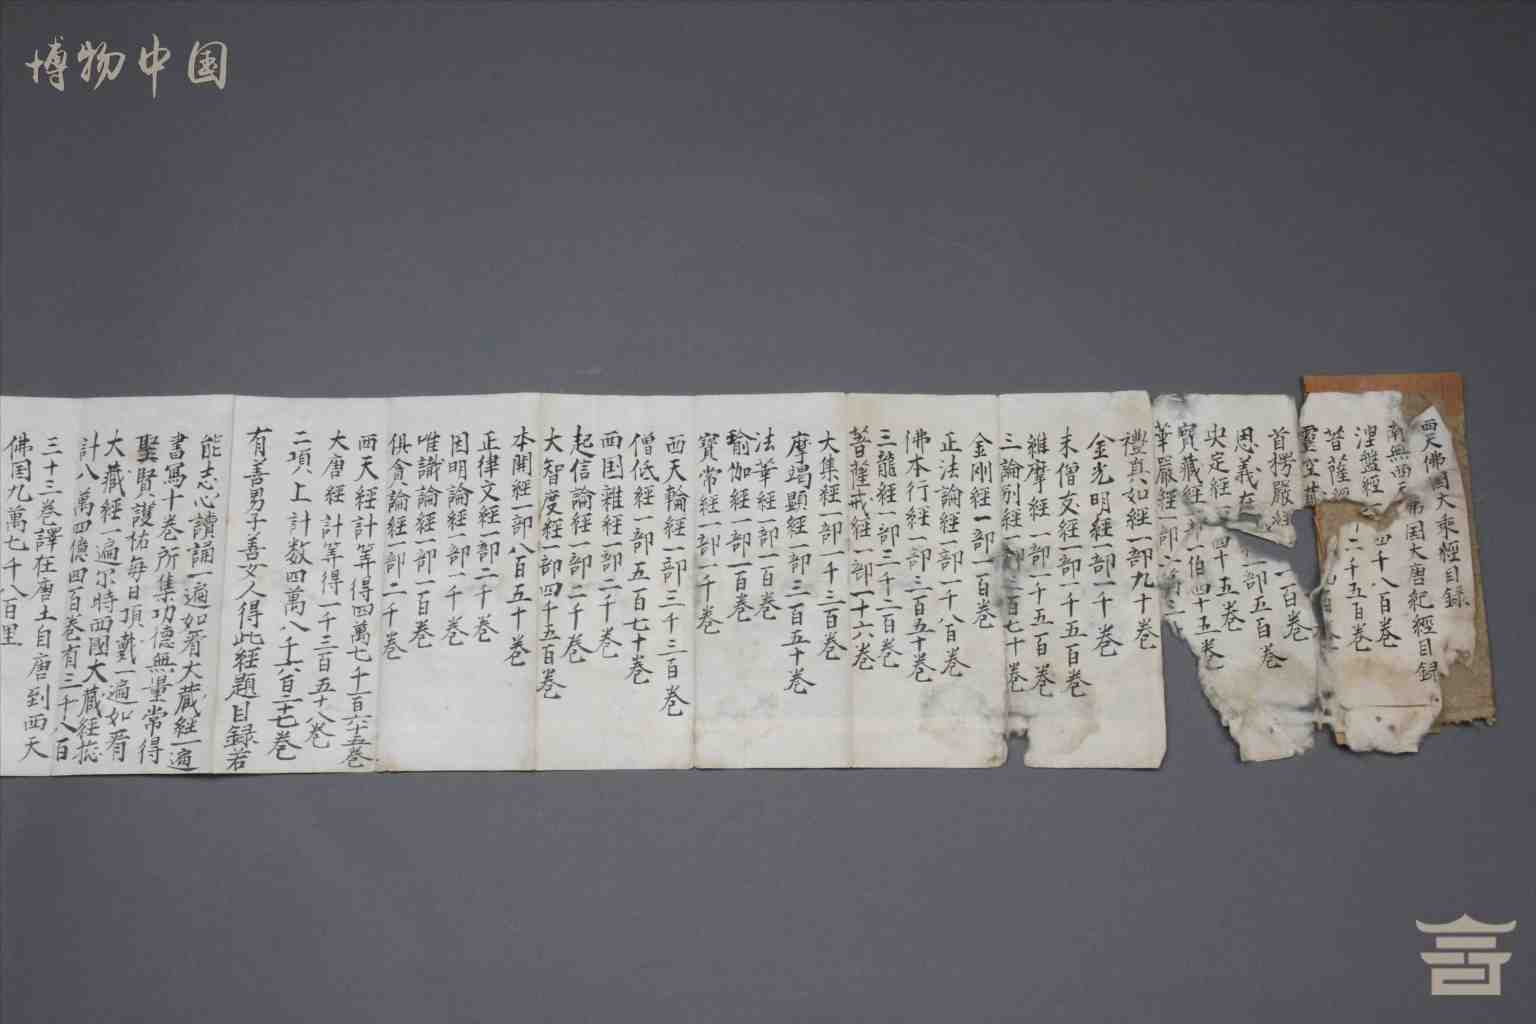 博物中国
西天佛国大乘經目録
南無西天佛国大唐紀經目録
涅盤經一四千八百巻
菩薩經二千五百巻
靈空藏
首楞嚴經一百巻
恩義在一部五百巻
决定經四十五巻
寳藏經一部一伯四十五巻
華嚴經一部
禮真如經一部九十巻
金光明經一部一千巻
未僧友經一部一千五百巻
維摩經一部一千五百巻
三論别經一部三百七十巻
金剛經一部一百巻
正法論經一部一千八百巻
佛本行經一部三百五十巻
三龍經一部三千二百巻
菩薩戒經一部一十六巻
大集經一部一千三百巻
摩竭顯經一部三百五十巻
法華經一部一百巻
瑜伽經一部一百巻
寳常經一部一千巻
西天輪經一部三千三百巻
僧低經一部五百七十巻
西国雜經一部二千巻
起信論經一部二千巻
大智度經一部四千五百巻
本開經一部八百五十巻
正律文經一部二千巻
因明論經一部一千巻
唯識論經一部一百巻
俱舍論經一部二千巻
西天經計等得四萬七千二百六十五巻
大唐經計等得一千三百五十八巻
二項上計数四萬八千六百二十七巻
有善男子善女人得此經題目録若
能志心讀誦一遍如看大藏經一遍
書寫十巻所集功德無量常得
聖賢護佑每日頂戴一遍如看
大藏經一遍尔時西國大藏經捴
計八萬四億四百巻有三千八百
三十三巻譯在唐土自唐到西天
佛国九萬七千八百里